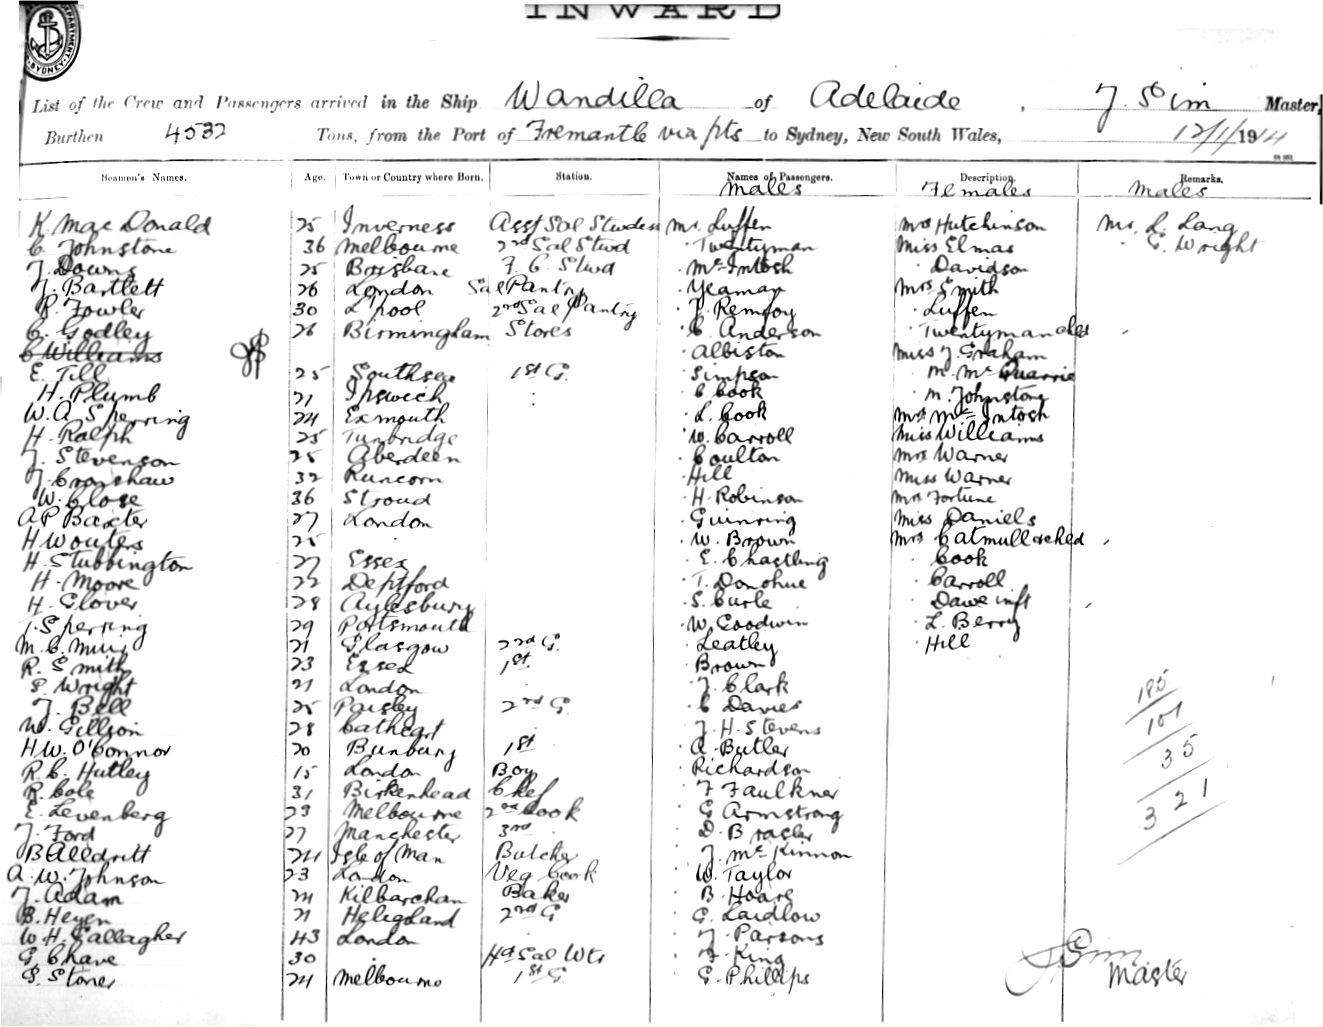 INWARD
DEPARTMENT SYDNEY
List of the Crew and Passengers arrived in the Ship Wandilla of Adelaide, J. Sim Master,
Burthen 4532 Tons, from the Port of Fremantle via pts to Sydney, New South Wales, 12/1/1914
Seamen's Names. Age. Town or Country where Born. Station. Names of Passengers. Description. Remarks.
Males Females Males
K. Mac Donald 25 Inverness Asst Sal Stwdess Mr. Luffen Mrs Hutchinson Mr. L. Lang
C. Johnstone 36 Melbourne 2nd Sal Stwd Twentyman Miss Elmas G. Wright
J. Downs 25 Brisbane F. C. Stwd McIntosh Davidson
J. Bartlett 26 London Sal Pantry Yeaman Mrs Smith
R. Fowler 30 L'pool 2nd Sal Pantry J. Remfoy Luffen
C. Godley 26 Birmingham Stores C. Anderson Twentyman
C Williams Albiston Miss J. Graham
E. Till 25 Southsea 1st G. Simpson M. McQuarrie
H. Plumb 21 Ipswich C Cook M. Johnstone
W. A Sperring 24 Exmouth L. Cook Mrs McIntosh
H. Ralph 25 Tunbridge W. Carroll Miss Williams
J. Stevenson 25 Aberdeen Coulton Mrs Warner
J. Cronshaw 32 Runcorn Hill Miss Warner
W. Close 36 Stroud H. Robinson Mrs Fortune
A P Baxter 27 London Guinring Miss Daniels
H Wouters 25 W. Brown Mrs Catmull & child
H. Stubbington 27 Essex E. Chastling Cook
H. Moore 22 Deptford T. Donohue Carroll
H. Glover 28 Aylesbury S. Curle Dawe inft
J. Sperring 29 Portsmouth W. Goodwin L. Berry
M. C. Muir 21 Glasgow 2nd G. Leatley Hill
R. Smith 23 Essex 1st Brown
S. Wright 21 London J. Clark 185
J. Bell 25 Paisley 2nd G. C Davies 101
W. Gillson 28 Cathcart J. H. Stevens
H. W. O'Connor 20 Bunbury 1st A. Butler 35
R. C. Hutley 15 London Boy Richardson
R. Cole 31 Birkenhead Chef F Faulkner 321
E. Levenberg 23 Melbourne 2nd Cook G Armstrong
J. Ford 27 Manchester 3rd D. Brasler
B Alldritt 24 Isle of Man Butcher J. McKinnon
A. W. Johnson 23 London Veg Cook W. Taylor
J. Adam 24 Kilbarchan Baker B. Hoare
B. Heyen 21 Heligoland 2nd G. Laidlow
W. H. Gallagher 43 London J. Parsons
G. Chave 30 Hd Sal Wtr F. King J Sim
G. Stoner 24 Melbourne 1st G. G. Phillips Master